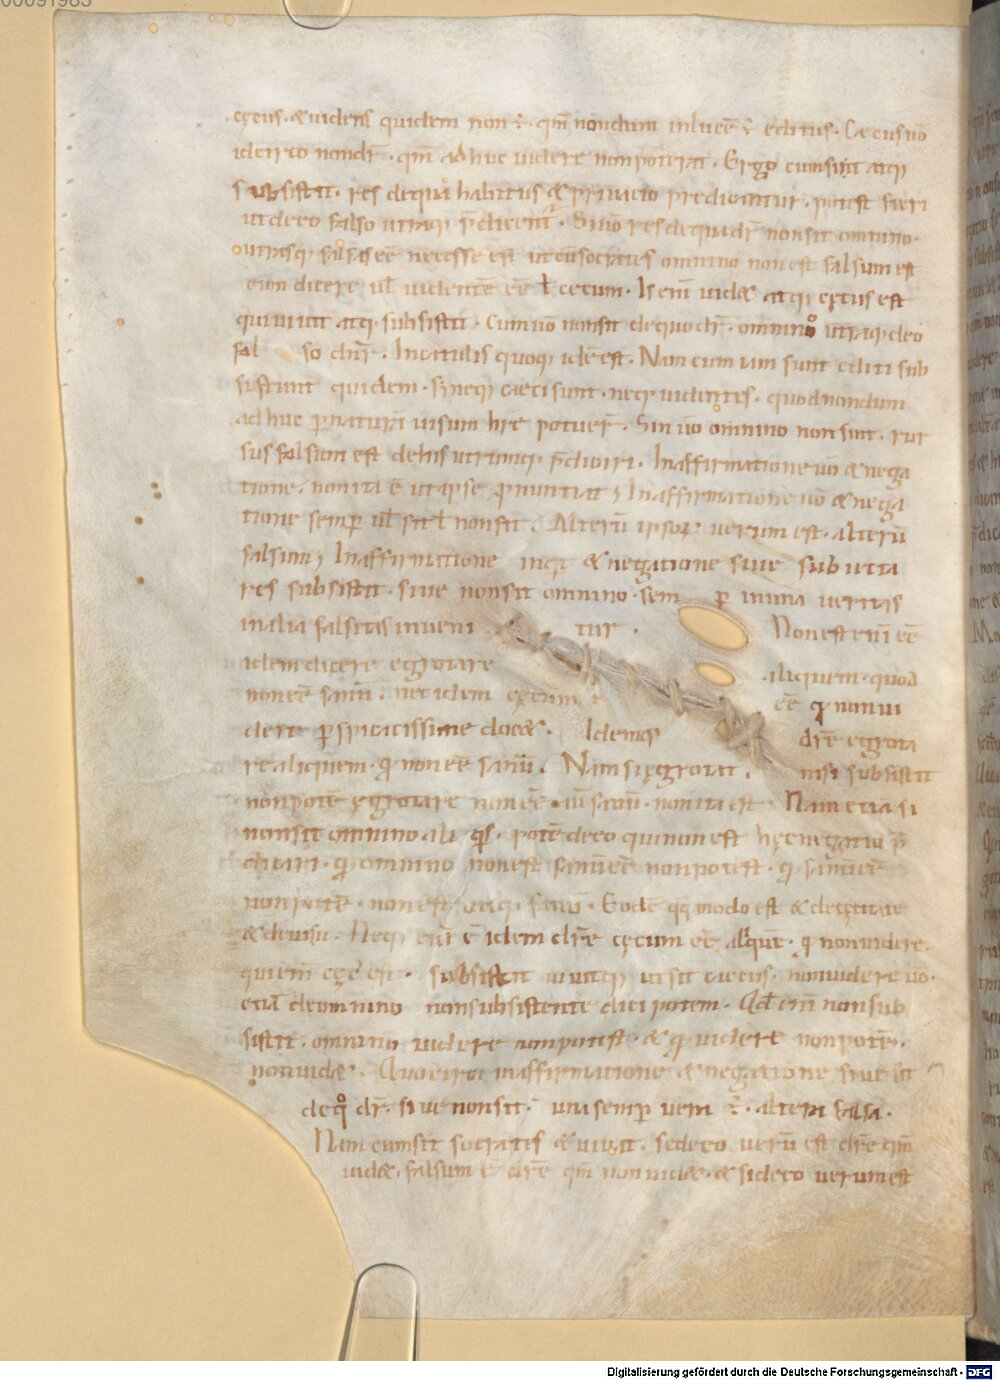 cęcus. & uidens quidem non ÷. qm̄ nondum in lucē ē editus. Cęcus uō
idcirco nondr̄. qm̄ adhuc uidere non poterat. Ergo cum sint atq;
subsistit. res de qua habitus & priuatio predicantur. potest fieri
ut de eo falso utraq; p̄dicent̄. Si uō res de qua dr̄ non sit omnino.
utrasq; falsas eē necesse est ut cū socrates omnino non est falsum est
eum dicere uł uidentē eē ł cecum. Is enī uidæ atq; cęcus est
qui uiuit atq; subsistit. Cum uō non sit de quo dr̄. omnino utraq; de eo
fal so dnr̄. In catulis quoq; idē est. Nam cum iam sunt editi sub
sistunt quidem. s; neq; cæci sunt. neq; uidentes. quod nondum
adhuc p naturā uisum hr̄e potuer̄. Sin uō omnino non sint. rur
sus falsum est de his utrumq; p̄dicari. In affirmatione uō & nega
tione. non ita ē ut ipse pnuntiat; In affirmatione uō & nega
tione semp uł sit ł non sit. Alterū ipsoꝝ uerum est. alterū
falsum; In affirmatione inqt & negatione siue subiecta
res subsistit. siue non sit omnino. sem p in una ueritas
in alia falsitas inueni tur. Non est enī eē
idem dicere egrotare aliquem. quod
non eē sanū. nec idem cęcum eē qđ non ui
dere pspicacissime docæ. Idemq; dr̄e egrota
re aliquem. qđ non eē sanū. Nam si ęgrotat. nisi subsistit
non potē ęgrotare non eē. uō sanū. non ita est. Nam etiā si
non sit omnino ali qs. potē de eo qui non est hęc negatio p̄
dicari. qđ omnino non est sanū eē non potest. qđ sanū eē
non potē. non est utiq; sanū. Eodē qq; modo est & de cęcitate
& de uisu. Neq; enī ē idem dr̄e cęcum eē aliquē. qđ non uidere.
qui enī cęc̄ est. subsistit uiuitq; ut sit cæcus. non uidere uō.
etiā de omnino non subsistente dici potem. Qđ enī non sub
sistit. omnino uidere non potest. & qđ uidere non potē.
non uidæ. Quocirca in affirmatione & negatione siue sit
de qo dr̄. siue non sit. una semp uera ÷. altera falsa.
Nam cum sit socrates & uiuat. si de eo uerū est dr̄e qm̄
uidæ. falsum ē dr̄e qm̄ non uidæ. & si de eo uerum est
Digitalisierung gefördert durch die Deutsche Forschungsgemeinschaft - DFG